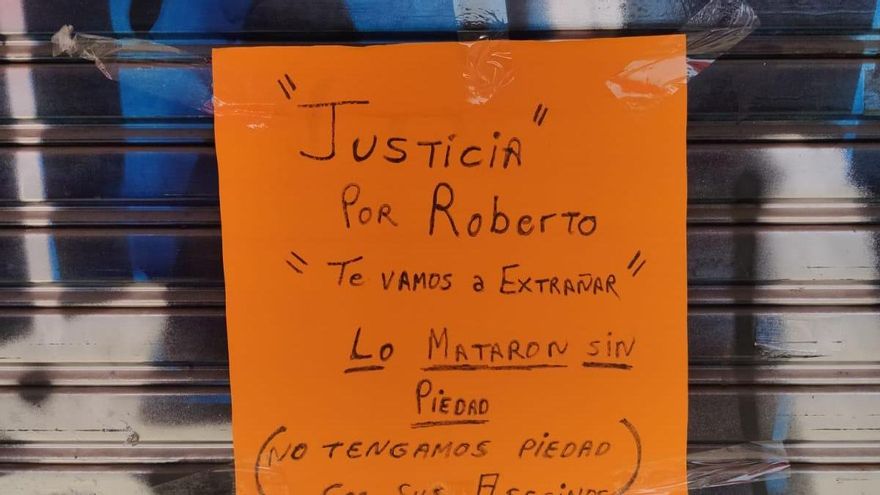 "JUSTICIA"
POR ROBERTO
"TE VAMOS a EXTRAÑAR"
LO MATARON SIN
PIEDAD
(NO TENGAMOS PIEDAD
CON SUS ASESINOS